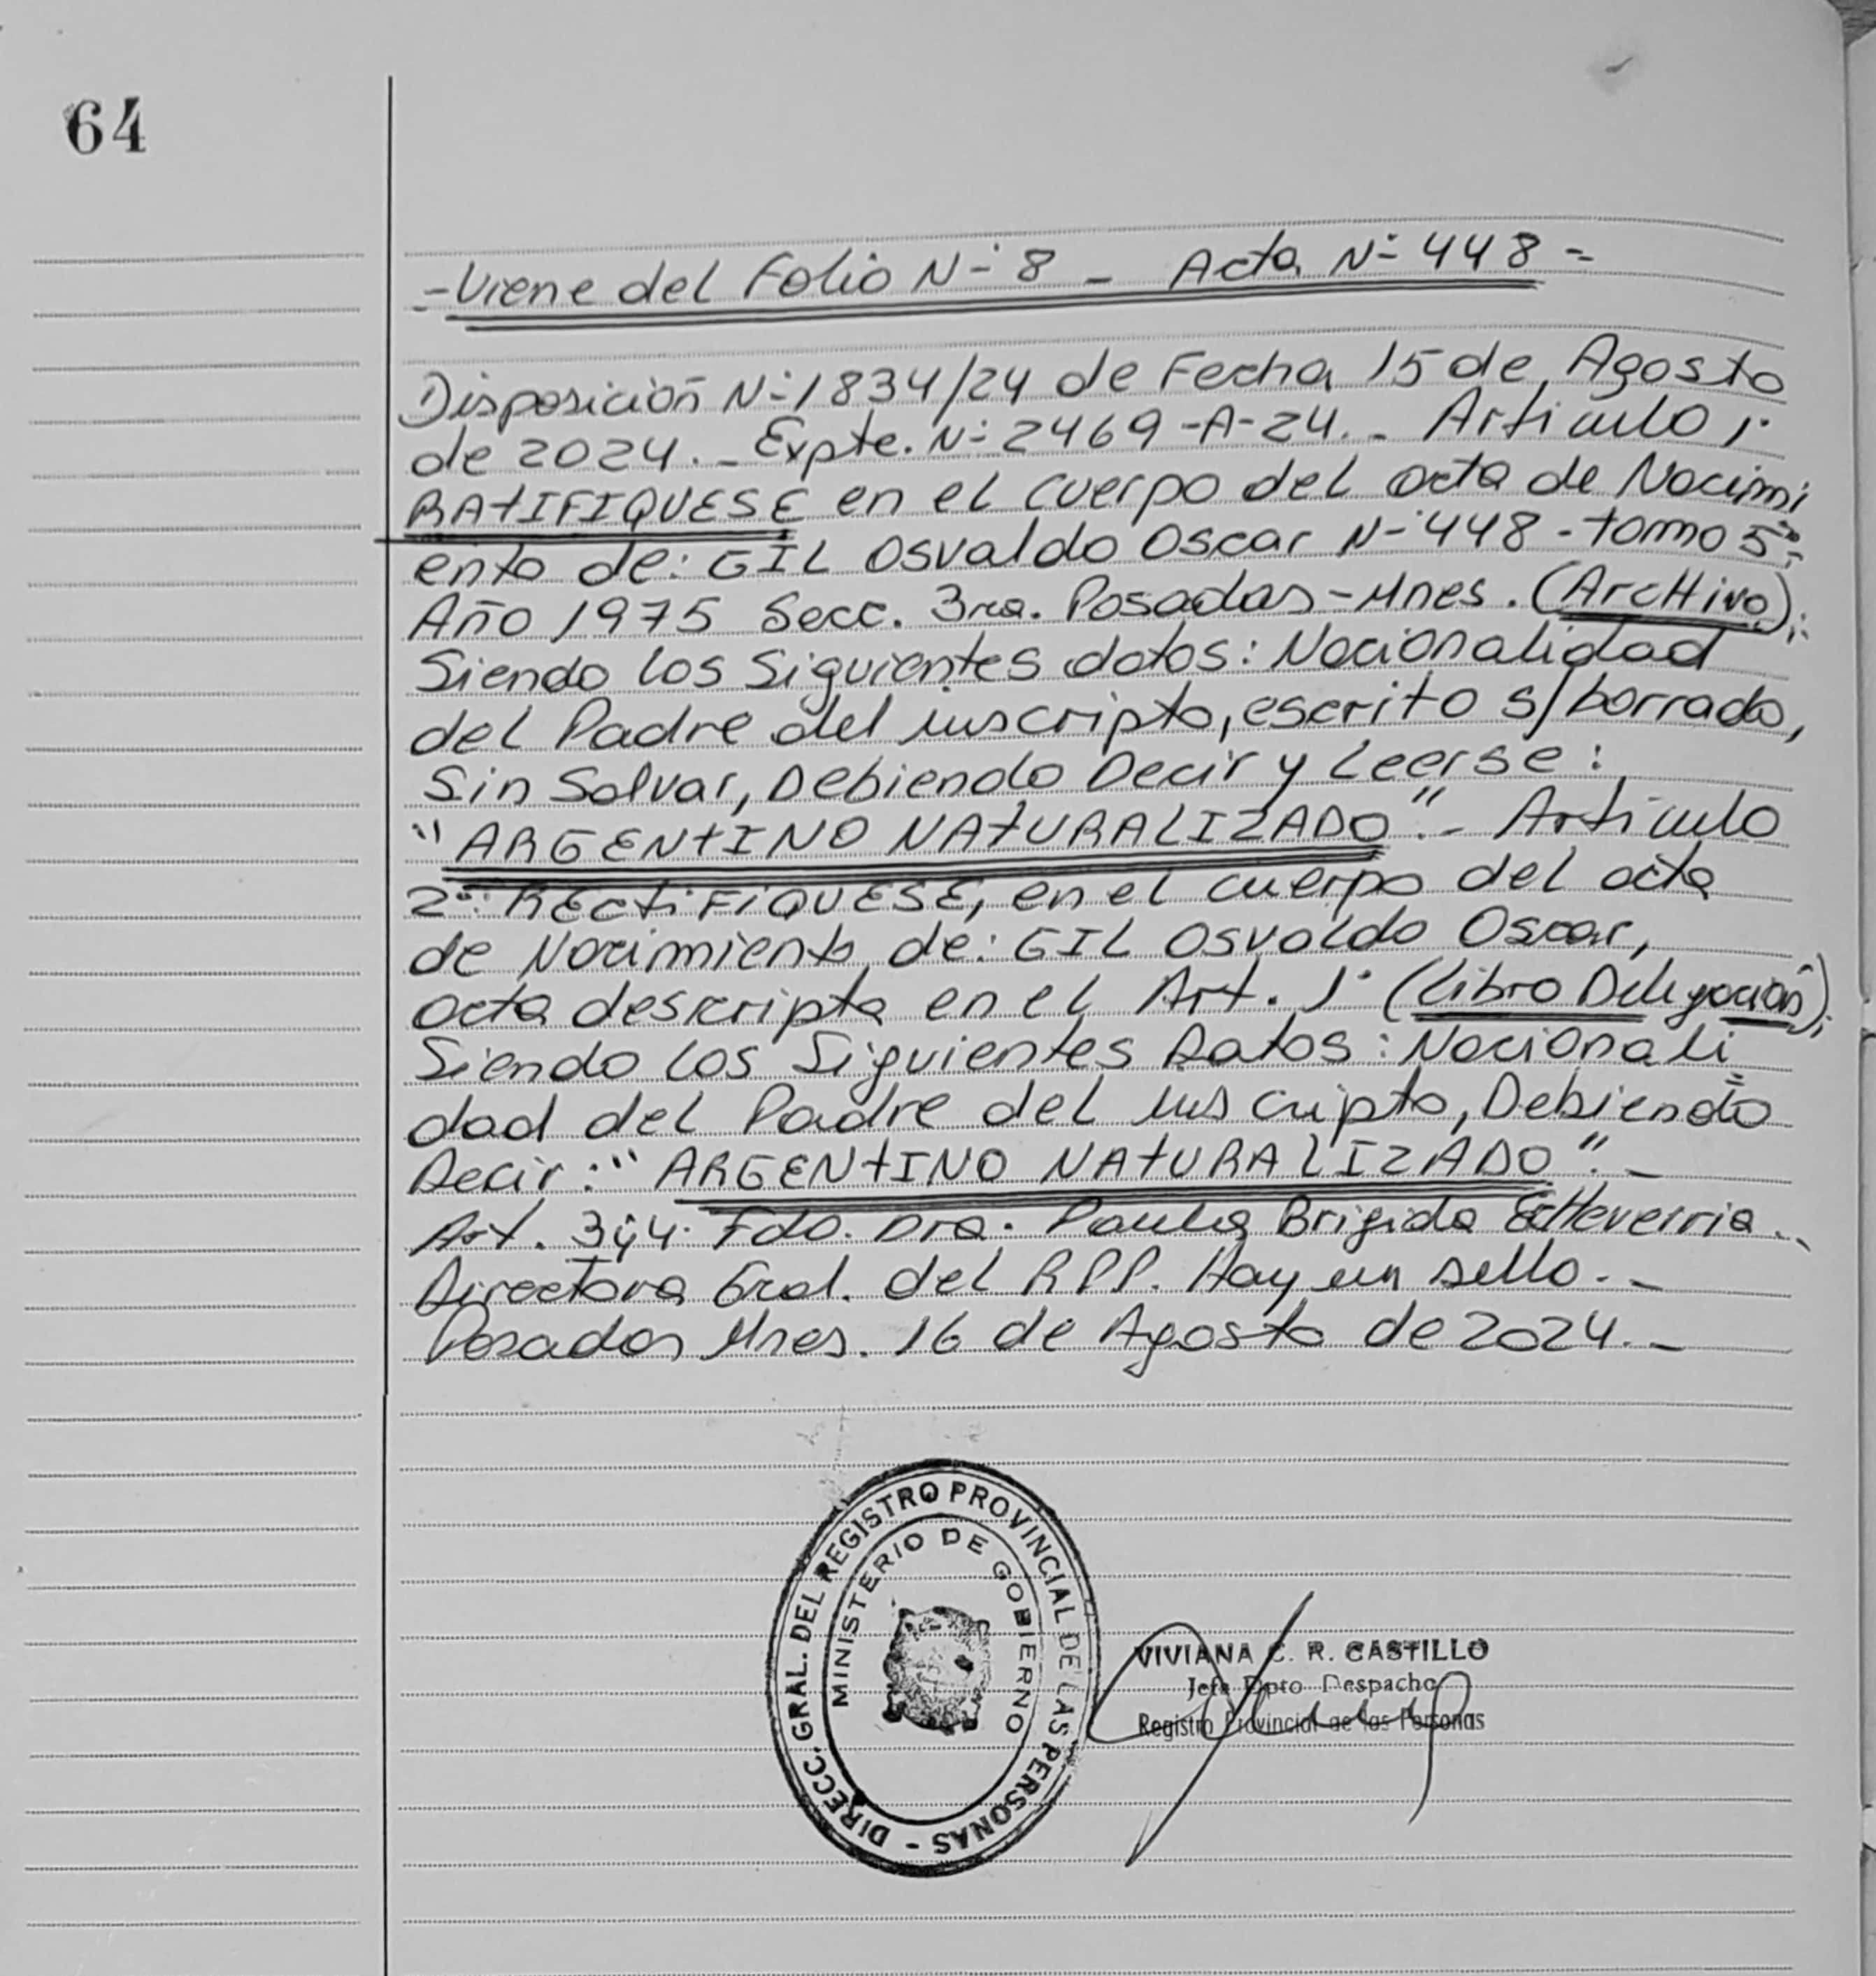 64
-Viene del Folio Nº 8 - Acta Nº 448-
Disposición Nº 1834/24 de Fecha 15 de Agosto
de 2024.- Expte. Nº 2469-A-24.- Artículo 1º
RATIFIQUESE en el cuerpo del acta de Nacimi
ento de: GIL Osvaldo Oscar Nº 448 - tomo 5º;
Año 1975 Secc. 3ra. Posadas-Mnes. (ArcHivo);
Siendo los Siguientes datos: Nacionalidad
del Padre del inscripto, escrito s/borrado,
Sin Salvar, Debiendo Decir y Leerse:
"ARGENTINO NATURALIZADO".- Artículo
2º: RECtiFiQUESE, en el cuerpo del acta
de Nacimiento de: GIL Osvaldo Oscar,
acta descripta en el Art. 1º (Libro Delegación);
Siendo los Siguientes Datos: Nacionali
dad del Padre del inscripto, Debiendo
Decir: "ARGENTINO NATURALIZADO".-
Art. 3y4. Fdo. Dra. Paula Brigida EtcHeverria..
Directora Gral. del RPP. Hay un sello.-
Posadas Mnes. 16 de Agosto de 2024.-
DIRECC. GRAL. DEL REGISTRO PROVINCIAL DE LAS PERSONAS -
MINISTERIO DE GOBIERNO
VIVIANA C. R. CASTILLO
Jefa Dpto Despacho
Registro Provincial de las Personas